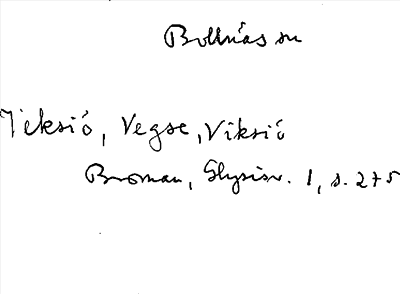 Bollnäs sn
Veksiö, Vegse, Viksiö
Broman, Glysisv. 1, s. 275